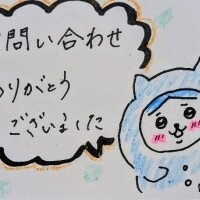 問い合わせ
りがとう
ございました